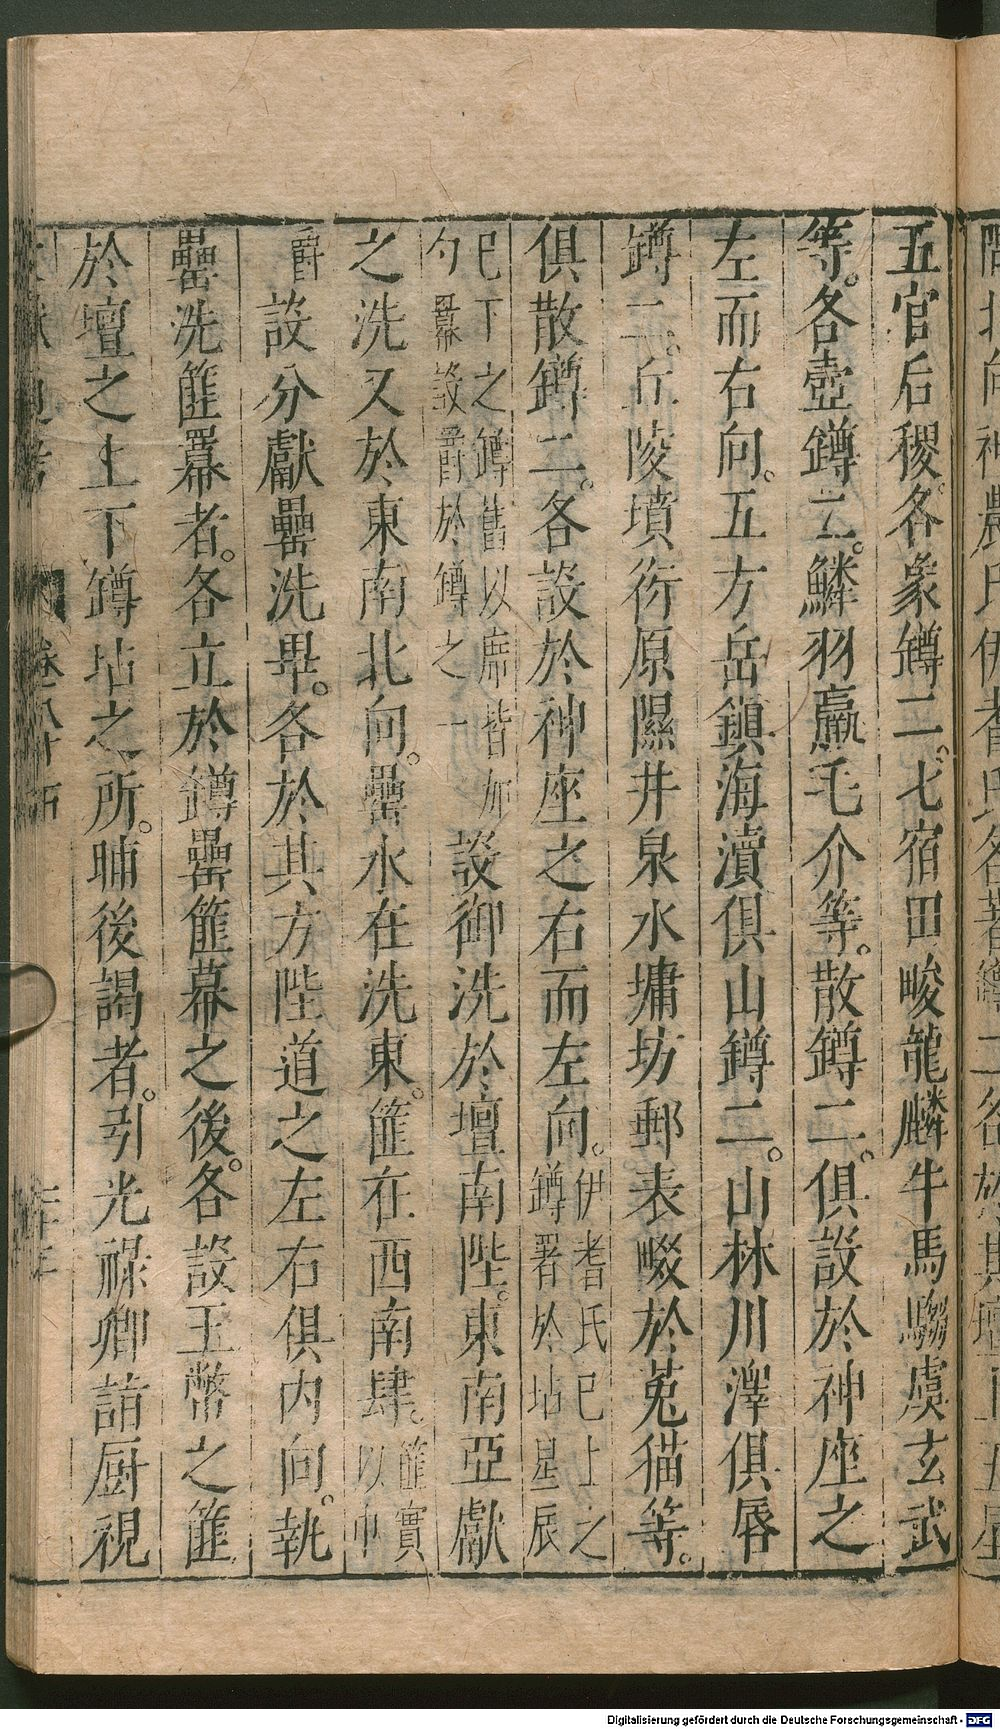 五官后稷。各象罇二。七宿田畯龍麟牛馬騶虞玄武
等。各壺罇二。鱗羽臝毛介等。散罇二。俱設於神座之
左而右向。五方岳鎮海瀆俱山罇二。山林川澤俱蜃
罇二。丘陵墳衍原隰井泉水墉坊郵表畷於菟猫等。
俱散罇二。各設於神座之右而左向。伊耆氏巳上之罇置於坫星辰
巳下之罇藉以席皆加勺羃設爵於罇之一設御洗於壇南陛。東南亞獻
之洗又於東南北向。罍水在洗東。篚在西南肆。篚實以巾
爵設分獻罍洗畢。各於其方陛道之左右俱内向。執
罍洗篚羃者。各立於罇罍篚幕之後。各設玉幣之篚
於壇之上下罇坫之所。晡後謁者。引光祿卿詣厨視
卷八十五
Digitalisierung gefördert durch die Deutsche Forschungsgemeinschaft - DFG